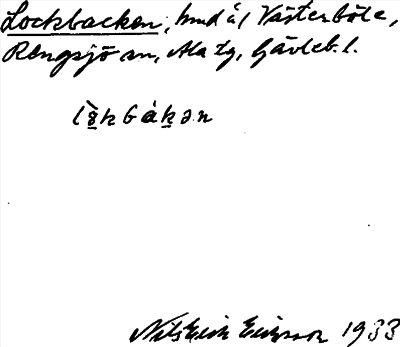 Lockbacken, hmd å l Västerböle,
Rengsjö sn, Ala tg, Gävleb. l.
lò̱kbáḵən
Nils Erik Eriksson 1933